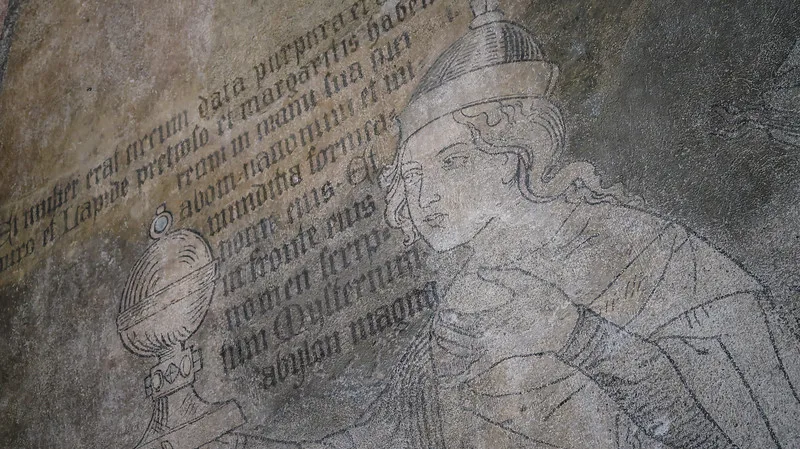 Et mulier erat circum data purpura et c
auro et Lapide pretioso et margaritis haben
teum in manu sua ple
abom-nationum et im
munditia fornica-
nonis eius. Et
in fronte eius
nomen scrip-
tum Mysterium
abylon magna